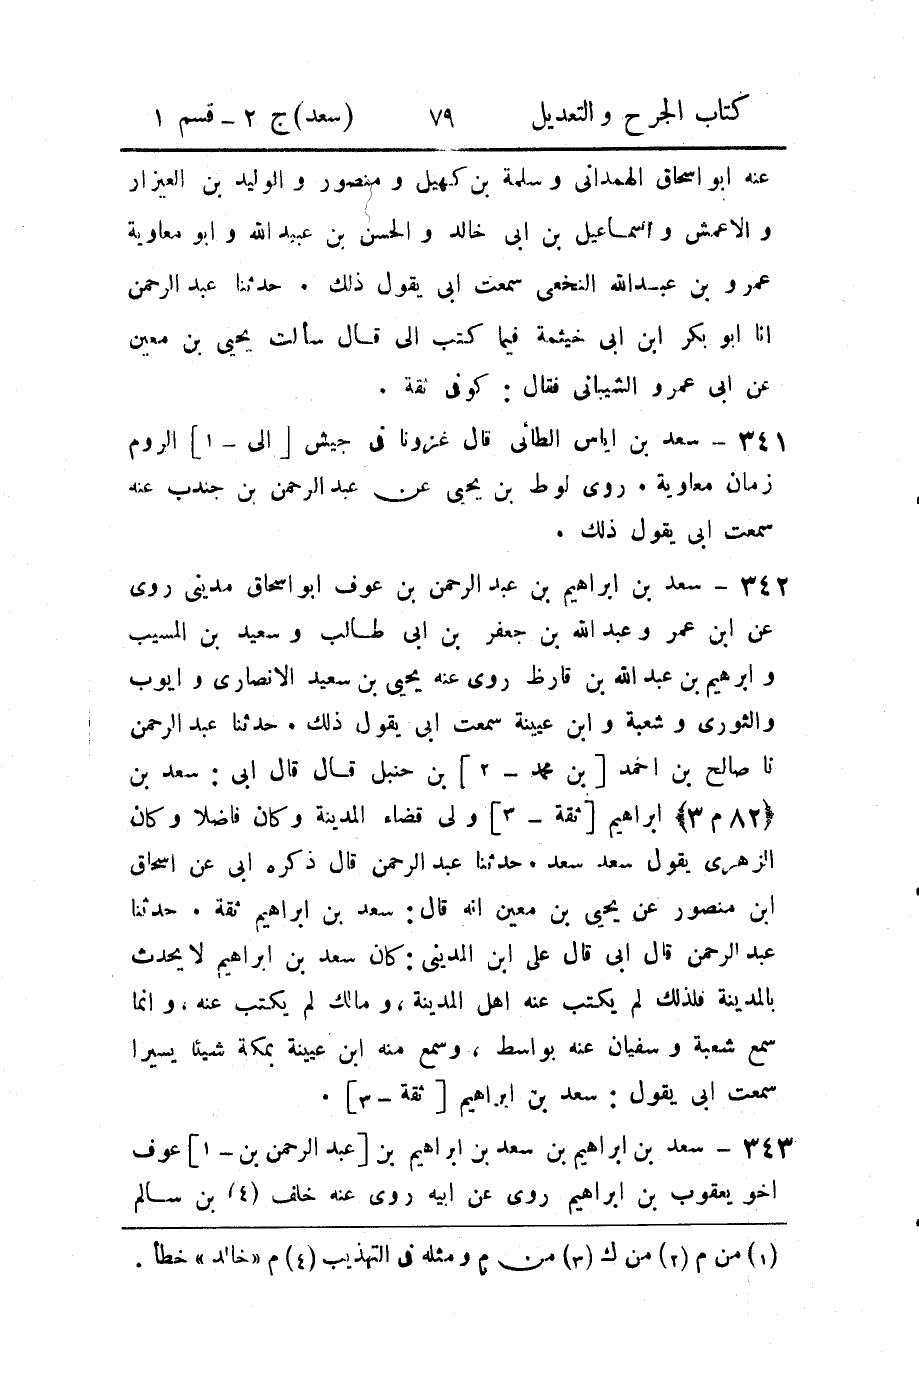 كتاب الجرح والتعديل ٧٩ (سعد) ج ٢ - قسم ١
عنه ابو اسحاق الهمدانى و سلمة بن كهيل و منصور و الوليد بن العيزار
و الاعمش و اسماعيل بن ابى خالد و الحسن بن عبيد الله و ابو معاوية
عمرو بن عبد الله النخعى سمعت ابى يقول ذلك . حدثنا عبد الرحمن
انا ابو بكر ابن ابى خيثمة فيما كتب الى قال سألت يحيى بن معين
عن ابى عمرو الشيبانى فقال : كوفى ثقة .
٣٤١ - سعد بن اياس الطائى قال غزونا فى جيش [ الى - ١ ] الروم
زمان معاوية . روى لوط بن يحيى عن عبد الرحمن بن جندب عنه
سمعت ابى يقول ذلك .
٣٤٢ - سعد بن ابراهيم بن عبد الرحمن بن عوف ابو اسحاق مدينى روى
عن ابن عمر و عبد الله بن جعفر بن ابى طالب و سعيد بن المسيب
و ابرهيم بن عبد الله بن قارظ روى عنه يحيى بن سعيد الانصارى و ايوب
والثورى و شعبة و ابن عيينة سمعت ابى يقول ذلك . حدثنا عبد الرحمن
نا صالح بن احمد [ بن محمد - ٢ ] بن حنبل قال قال ابى : سعد بن
﴿٨٢ م ٣﴾ ابراهيم [ ثقة - ٣ ] و لى قضاء المدينة وكان فاضلا وكان
الزهرى يقول سعد سعد . حدثنا عبد الرحمن قال ذكره ابى عن اسحاق
ابن منصور عن يحيى بن معين انه قال : سعد بن ابراهيم ثقة . حدثنا
عبد الرحمن قال ابى قال على ابن المدينى : كان سعد بن ابراهيم لا يحدث
بالمدينة فلذلك لم يكتب عنه اهل المدينة ، و مالك لم يكتب عنه ، و انما
سمع شعبة و سفيان عنه بواسط ، وسمع منه ابن عيينة بمكة شيئا يسيرا
سمعت ابى يقول : سعد بن ابراهيم [ ثقة - ٣ ] .
٣٤٣ - سعد بن ابراهيم بن سعد بن ابراهيم بن [ عبد الرحمن بن - ١ ] عوف
اخو يعقوب بن ابراهيم روى عن ابيه روى عنه خلف (٤) بن سالم
(١) من م (٢) من ك (٣) من م و مثله فى التهذيب (٤) م «خالد» خطأ .